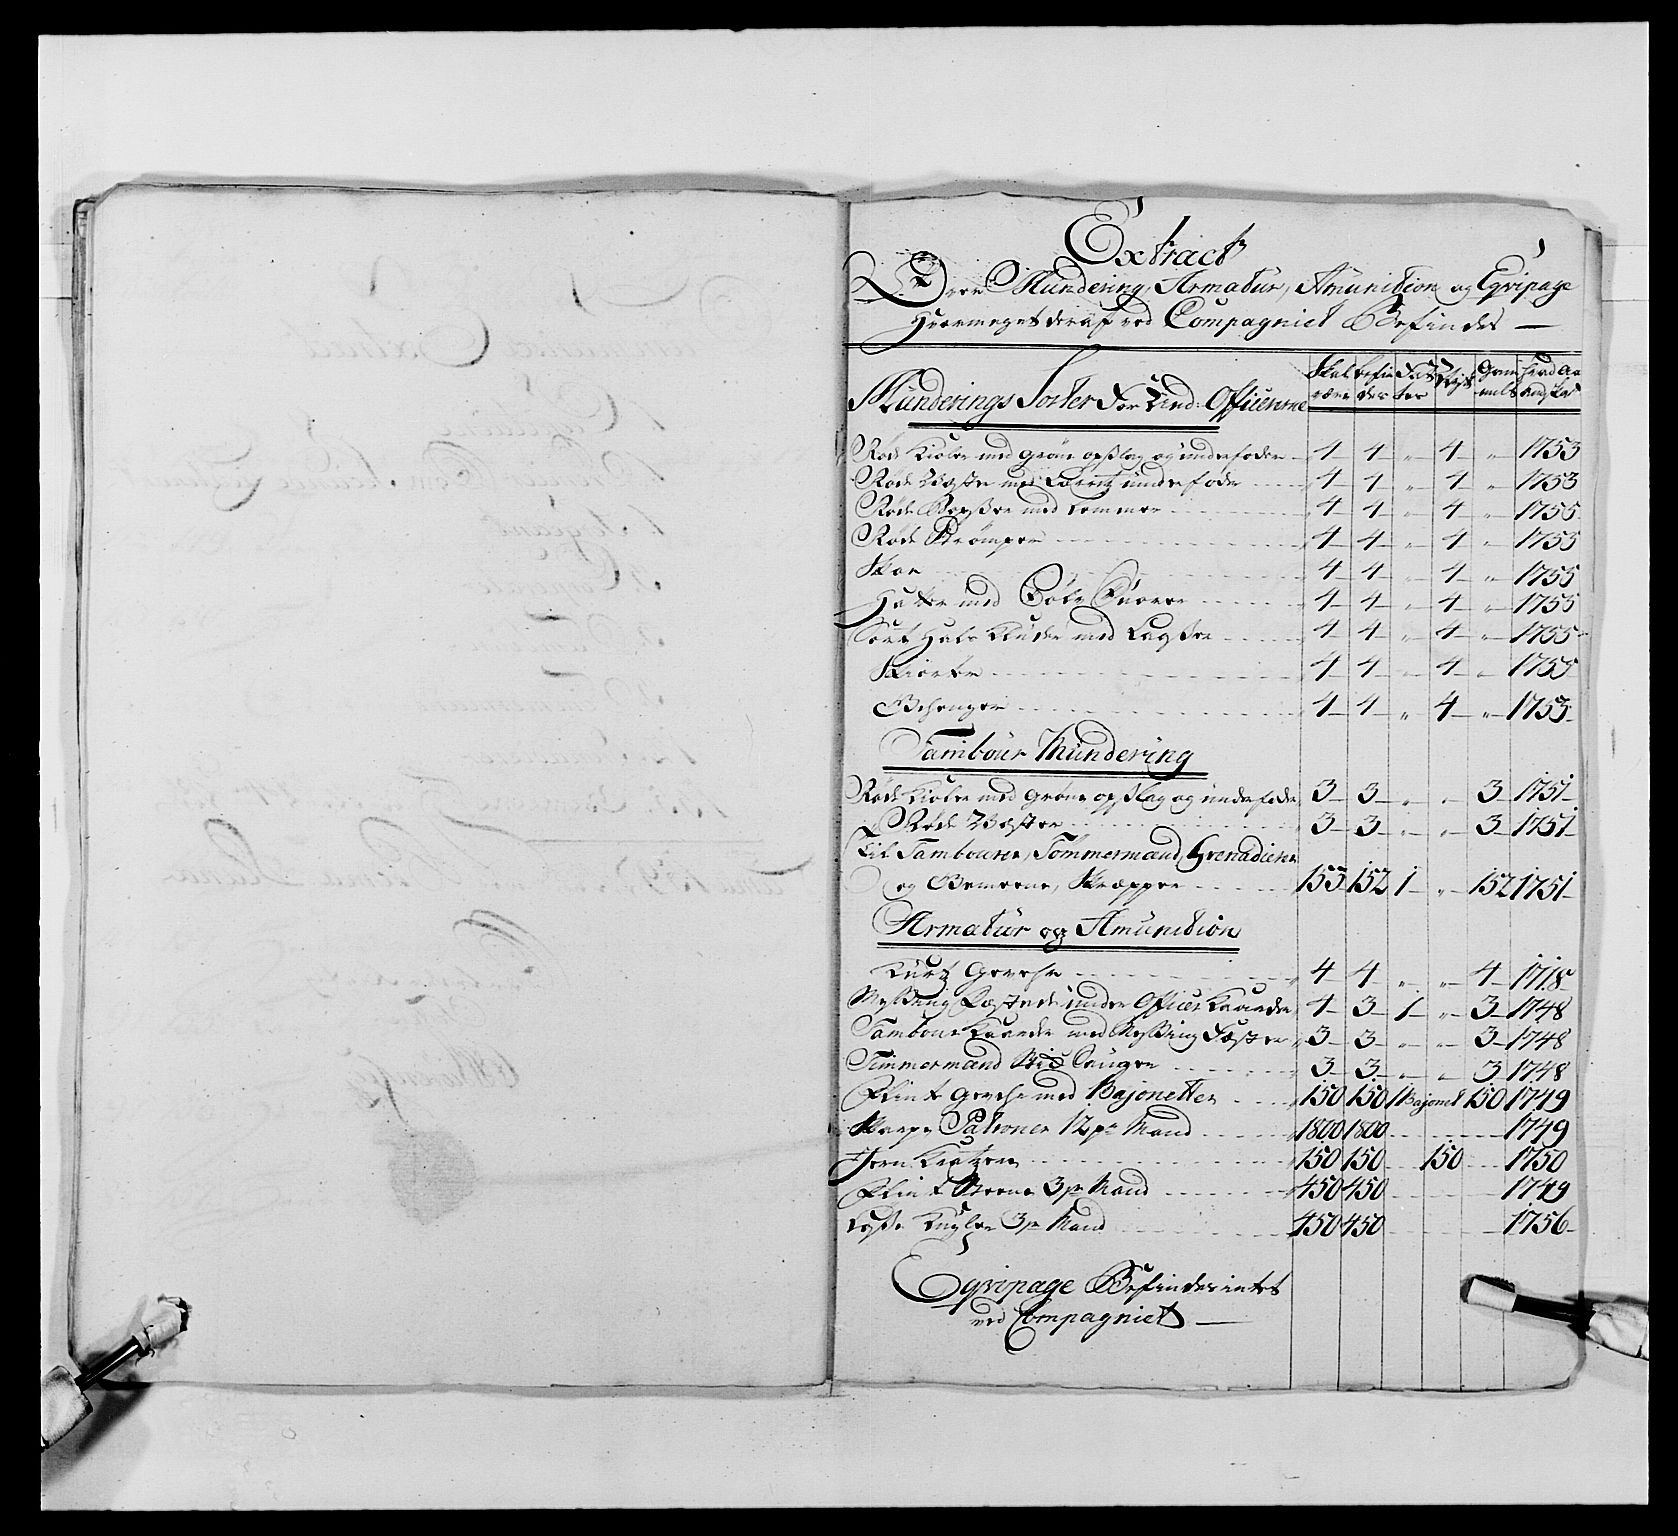 Extract
Over Mundering, Armatur, Amunition og Eqvipage
Hvormeget deraf ved Compagniet Befindes —
Munderings Sorter For Und: Officererne | Skal være | befindes | Fattes | Nyt | Gammelt | hvad Aar
Røde Kioler med grøne opslag og underfoder | 4 | 4 | „ | 4 | „ | 1753
Røde Veste med underfoder | 4 | 4 | „ | 4 | „ | 1753
Røde med Lommer | 4 | 4 | „ | 4 | „ | 1755
Røde Strømper | 4 | 4 | „ | 4 | „ | 1755
Skoe | 4 | 4 | „ | 4 | „ | 1755
Hatte med Snorer | 4 | 4 | „ | 4 | „ | 1755
Sort Hals Klude med | 4 | 4 | „ | 4 | „ | 1755
Skiorter | 4 | 4 | „ | 4 | „ | 1755
Gehenger | 4 | 4 | „ | 4 | „ | 1753
Tambour Mundering
Røde Kioler med grøne opslag og underfoder | 3 | 3 | „ | „ | 3 | 1751
Røde Vester | 3 | 3 | „ | „ | 3 | 1751
Til Tambourer, Tømmermænd, Grenaderer
og Gemeene, Skrepper | 153 | 152 | 1 | „ | 152 | 1751
Armatur og Amunition
Kurtz Gevehr | 4 | 4 | „ | „ | 4 | 1718
Messing Fæstede under Officer Kaarder | 4 | 3 | 1 | „ | 3 | 1748
Tambour Kaarder med Messing Fæster | 3 | 3 | „ | „ | 3 | 1748
Timmermand | 3 | 3 | „ | „ | 3 | 1748
Flint Gevehr med Bajonetter | 150 | 150 | 1 Bajonet | 150 | 1749
Skarpe Patroner 12 pr Mand | 1800 | 1800 | 1749
Jern Kratzere | 150 | 150 | 150 | 1750
Flint Steene 3 pr Mand | 450 | 450 | 1749
Løse Kugler 3 pr Mand | 450 | 450 | 1756
Eqvipage Befindes intet
ved Compagniet —